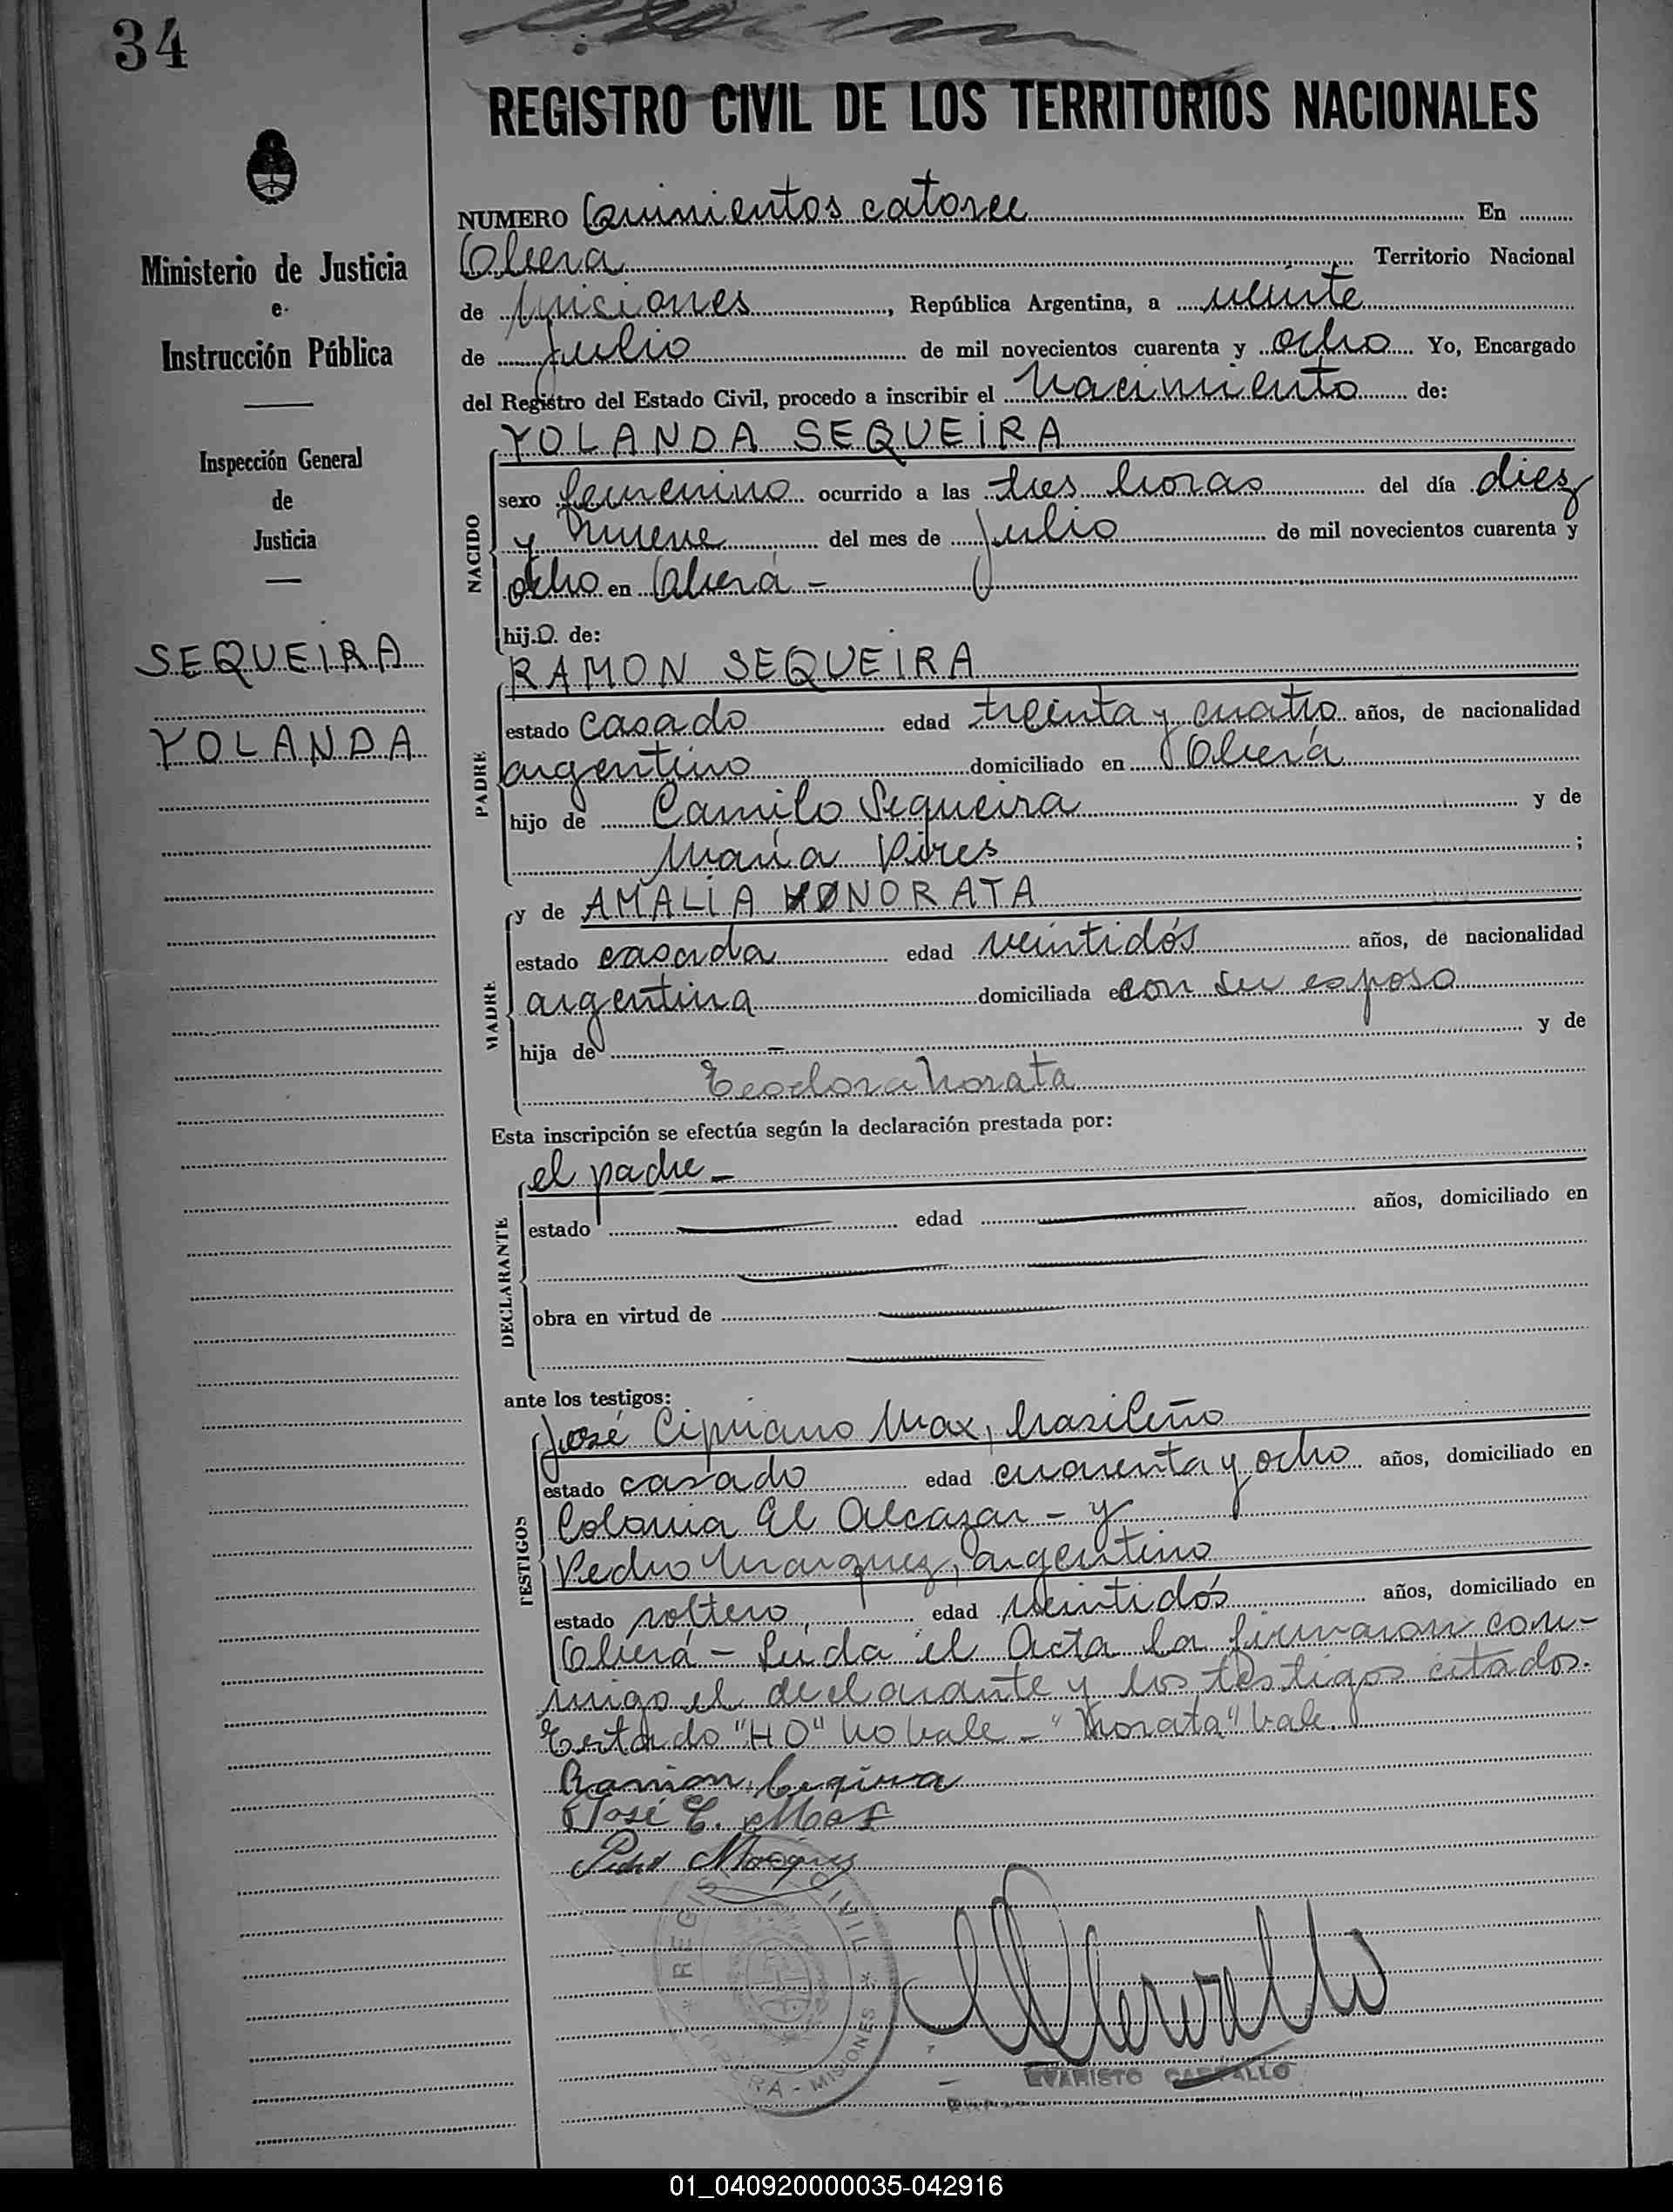 34
REGISTRO CIVIL DE LOS TERRITORIOS NACIONALES
Ministerio de Justicia
e
Instrucción Pública
Inspección General
de
Justicia
SEQUEIRA
YOLANDA
NUMERO Quinientos catorce En
Oberá Territorio Nacional
de Misiones, República Argentina, a veinte
de Julio de mil novecientos cuarenta y ocho Yo, Encargado
del Registro del Estado Civil, procedo a inscribir el Nacimiento de:
YOLANDA SEQUEIRA
NACIDO
sexo femenino ocurrido a las tres horas del día diez
y nueve del mes de Julio de mil novecientos cuarenta y
ocho en Oberá -
hij.a. de:
RAMON SEQUEIRA
PADRE
estado casado edad treinta y cuatro años, de nacionalidad
argentino domiciliado en Oberá
hijo de Camilo Sequeira y de
María Pires ;
y de AMALIA HONORATA
MADRE
estado casada edad veintidós años, de nacionalidad
argentina domiciliada en con su esposo
hija de - y de
Teodora Norata
Esta inscripción se efectúa según la declaración prestada por:
el padre -
DECLARANTE
estado edad años, domiciliado en
obra en virtud de
ante los testigos:
José Cipriano Max, brasileño
TESTIGOS
estado casado edad cuarenta y ocho años, domiciliado en
Colonia El Alcazar - y
Pedro Marquez, argentino
estado soltero, edad veintidós años, domiciliado en
Oberá - Leída el Acta la firmaron con-
migo el declarante y los testigos citados.
Testado "HO" no vale - "Norata" vale.
Ramon
José C. Max
Pedro Marques
REGISTRO CIVIL * OBERA - MISIONES *
EVARISTO CARVALLO
01_040920000035-042916